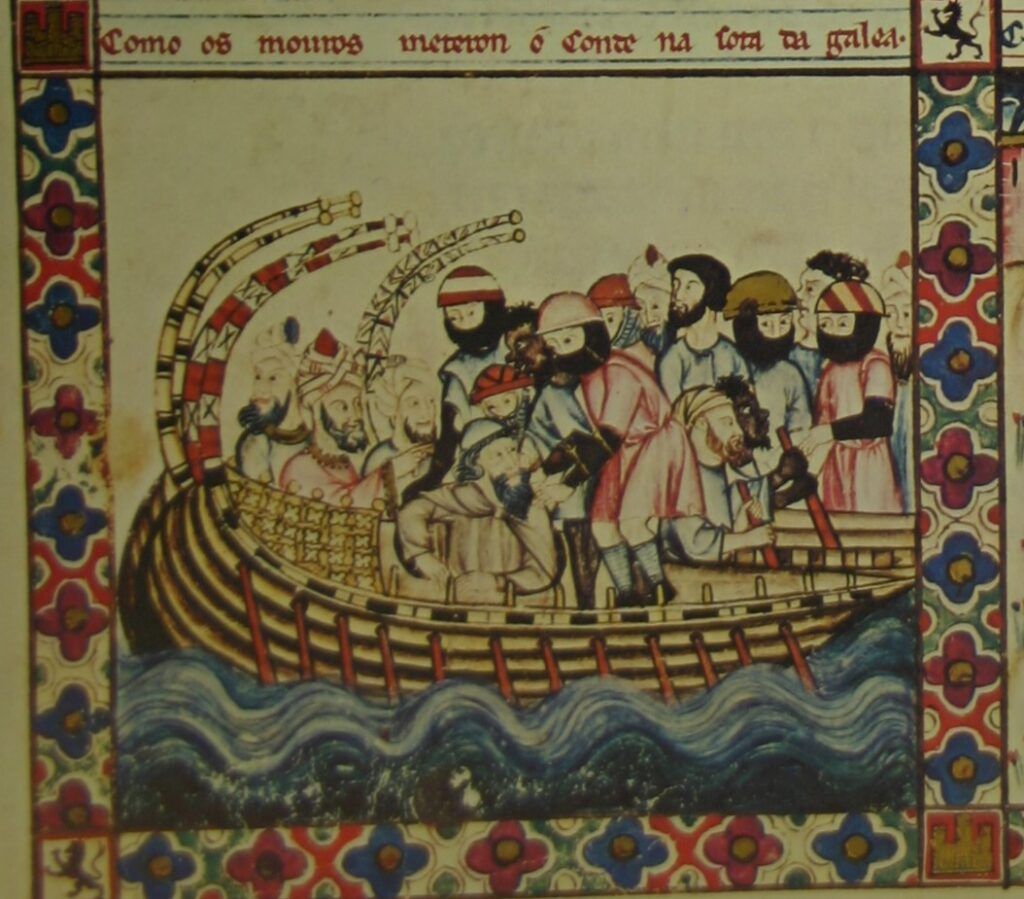 Como os mouros meteron ó Conde na sota da galea.